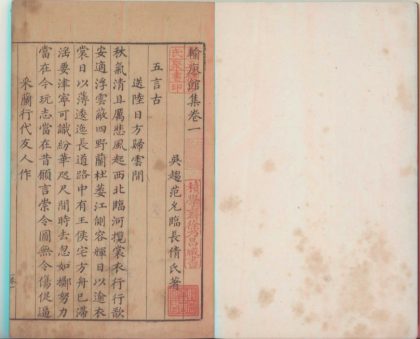 輸廖館集卷一
吳趨范允臨長倩氏著
五言古
送陸日方歸雲間
秋氣清且厲悲風起西北臨河攬裳衣行行欲
安適浮雲蔽四野蘭杜萎江側容輝日以遠衣
裳日以薄逶迤長道路中有王侯宅方舟已蕩
淫要津寧可識紛華咫尺間時去忽如擲努力
當在今玩志當在昔願言崇令圖無令傷促逼
采蘭行代友人作